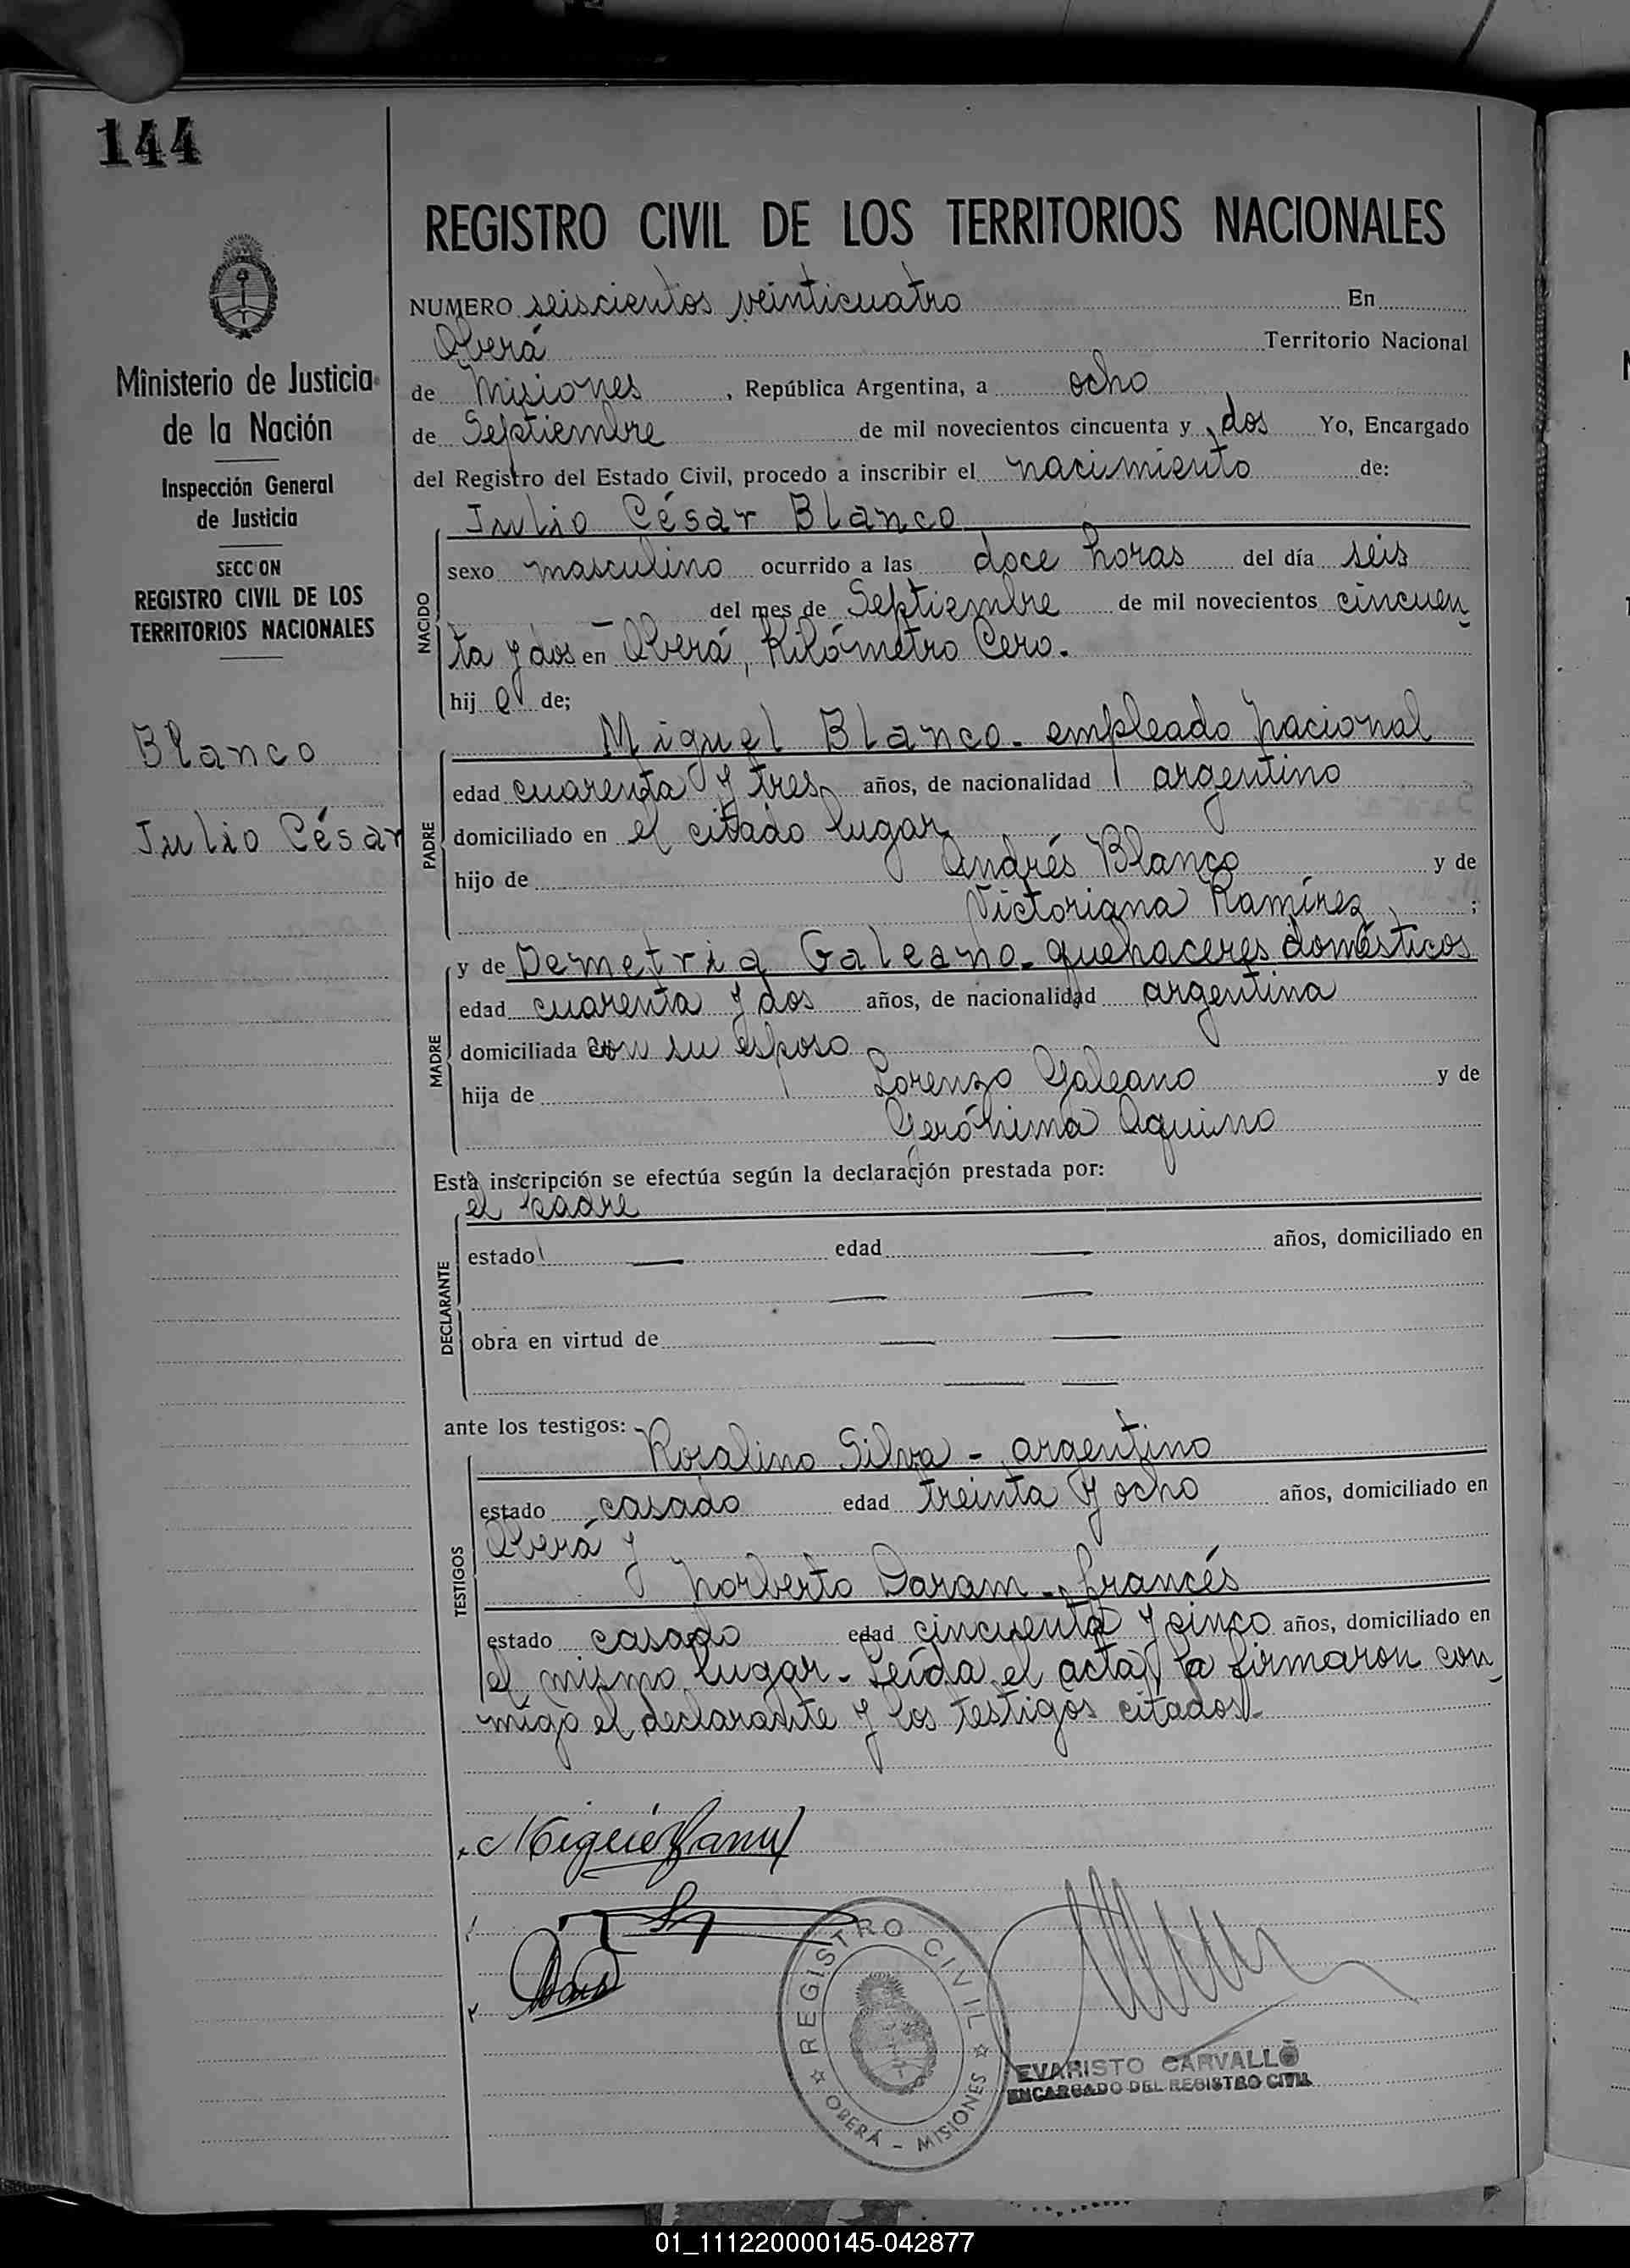 144
REGISTRO CIVIL DE LOS TERRITORIOS NACIONALES
Ministerio de Justicia
de la Nación
Inspección General
de Justicia
SECC ON
REGISTRO CIVIL DE LOS
TERRITORIOS NACIONALES
Blanco
Julio César
NUMERO seiscientos veinticuatro En
Oberá Territorio Nacional
de Misiones, República Argentina, a ocho
de Septiembre de mil novecientos cincuenta y dos Yo, Encargado
del Registro del Estado Civil, procedo a inscribir el nacimiento de:
Julio César Blanco
NACIDO
sexo masculino ocurrido a las doce horas del día seis
del mes de Septiembre de mil novecientos cincuen
ta y dos en Oberá, Kilómetro Cero.
hij o de;
Miguel Blanco - empleado nacional
PADRE
edad cuarenta y tres años, de nacionalidad argentino
domiciliado en el citado lugar
hijo de Andrés Blanco y de
Victoriana Ramírez ;
y de Demetria Galeano - quehaceres domésticos
MADRE
edad cuarenta y dos años, de nacionalidad argentina
domiciliada con su esposo
hija de Lorenzo Galeano y de
Gerónima Aquino
Esta inscripción se efectúa según la declaración prestada por:
el padre
DECLARANTE
estado — edad — años, domiciliado en
— —
obra en virtud de — —
— —
ante los testigos:
Rosalino Silva - argentino
TESTIGOS
estado casado edad treinta y ocho años, domiciliado en
Oberá y
Norberto Daram - francés
estado casado edad cincuenta y cinco años, domiciliado en
el mismo lugar - Leída el acta, la firmaron con
migo el declarante y los testigos citados -
REGISTRO CIVIL
OBERÁ - MISIONES
EVARISTO CARVALLO
ENCARGADO DEL REGISTRO CIVIL
01_111220000145-042877